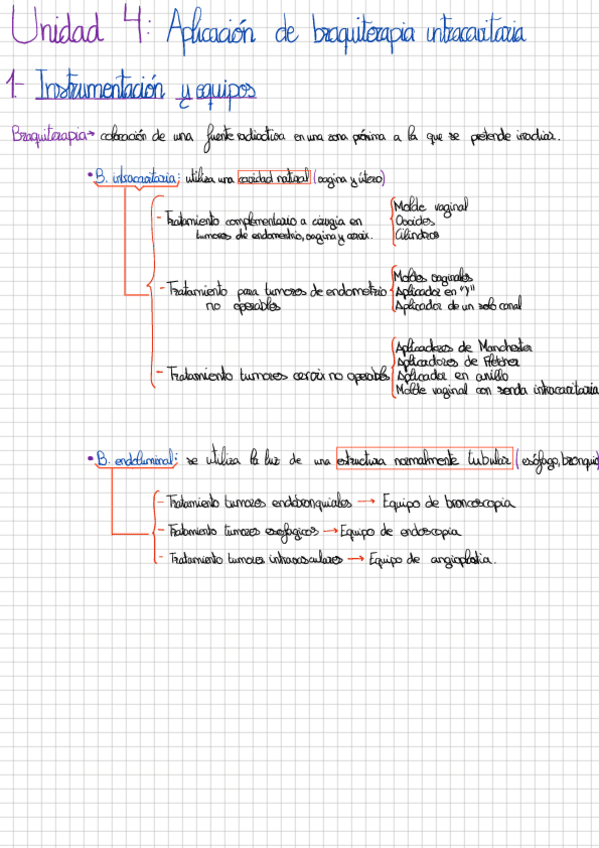 Unidad 4: Aplicación de braquiterapia intracavitaria
1- Instrumentación y equipos
Braquiterapia → colocación de una fuente radiactiva en una zona próxima a la que se pretende irradiar.
• B. intracavitaria: utiliza una cavidad natural (vagina y útero)
- Tratamiento complementario a cirugía en
tumores de endometrio, vagina y cervix.
Molde vaginal
Ovoides
Cilindros
- Tratamiento para tumores de endometrio
no operables
Moldes vaginales
Aplicador en "Y"
Aplicador de un solo canal
- Tratamiento tumores cervix no operables
Aplicadores de Manchester
Aplicadores de Fletcher
Aplicador en anillo
Molde vaginal con sonda intracavitaria
• B. endoluminal: se utiliza la luz de una estructura normalmente tubular (esófago, bronquio)
- Tratamiento tumores endobronquiales → Equipo de broncoscopia
- Tratamiento tumores esofágicos → Equipo de endoscopia
- Tratamiento tumores intravasculares → Equipo de angioplastia.